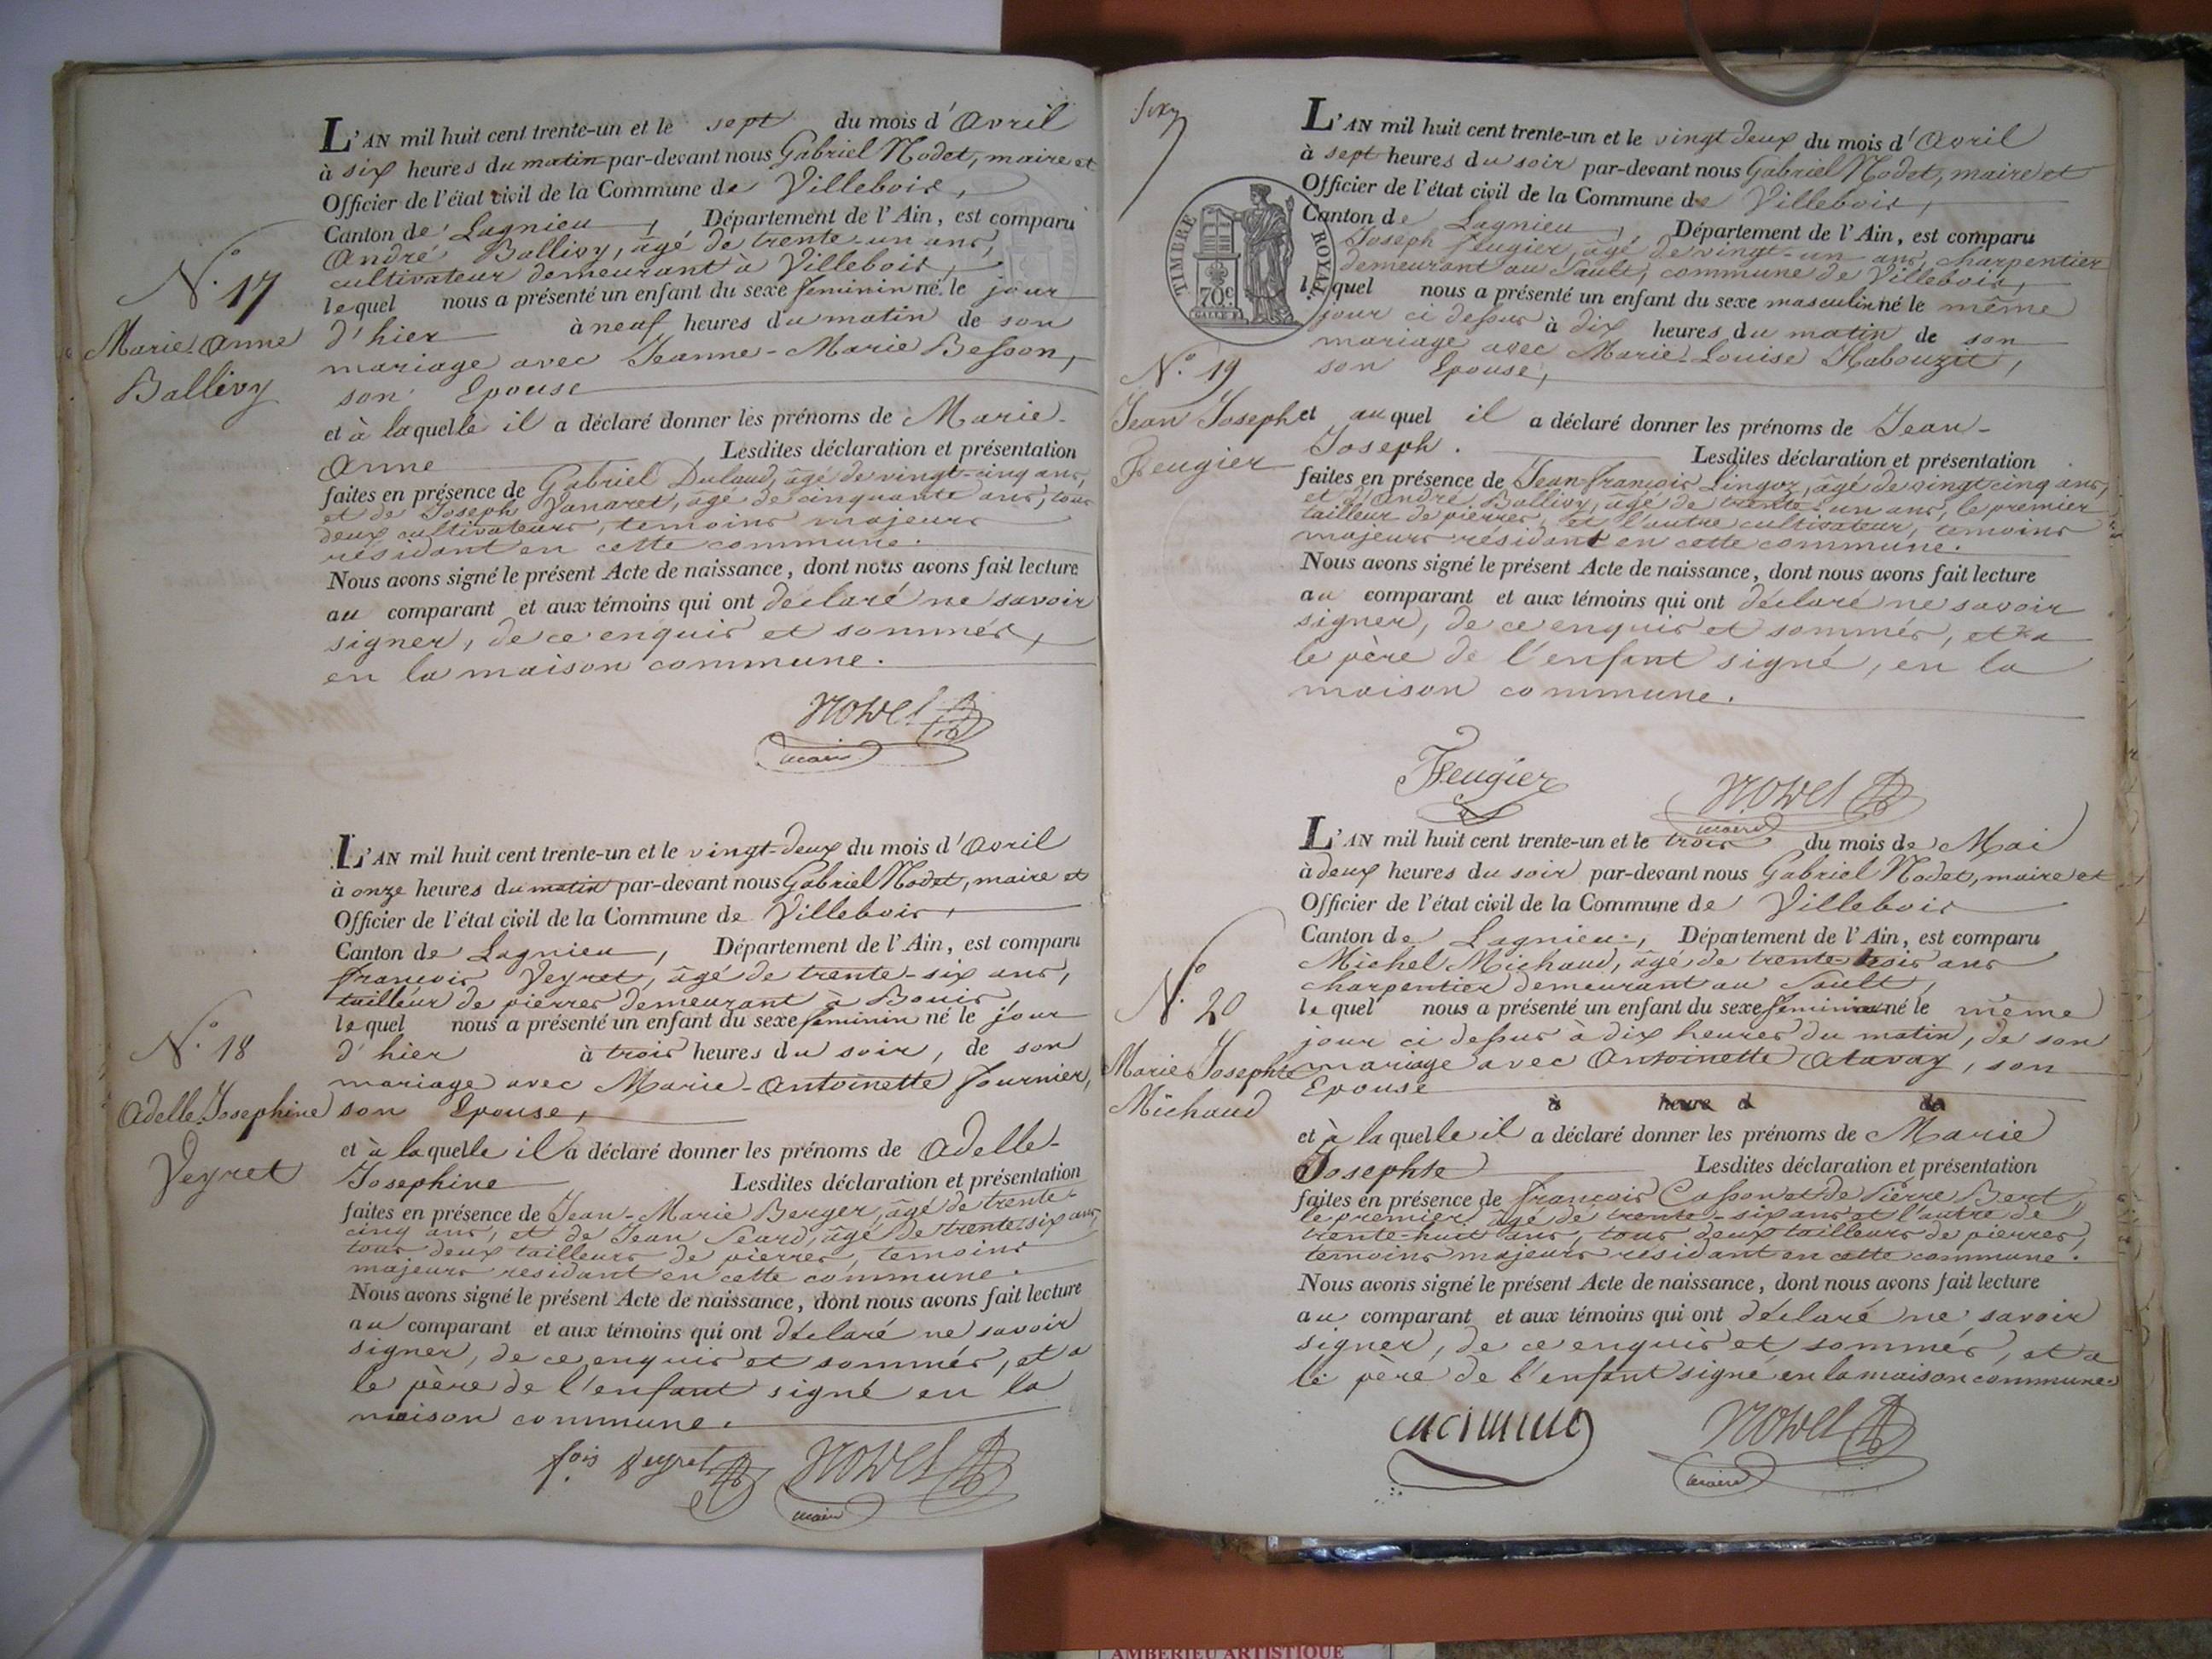 L'AN mil huit cent trente-un et le sept du mois d'Avril
à six heures du matin par-devant nous Gabriel Nodet, maire et
Officier de l'état civil de la Commune de Villebois,
Canton de Lagnieu, Département de l'Ain, est comparu
André Ballivy, âgé de trente-un ans,
cultivateur demeurant à Villebois,
lequel nous a présenté un enfant du sexe feminin né le jour
d'hier à neuf heures du matin de son
mariage avec Jeanne-Marie Besson,
son Epouse
et à laquelle il a déclaré donner les prénoms de Marie-
Anne Lesdites déclaration et présentation
faites en présence de Gabriel Dulaud, âgé de vingt-cinq ans,
et de Joseph Vanaret, âgé de cinquante ans, tous
deux cultivateurs, temoins majeurs
résidant en cette commune.
Nous avons signé le présent Acte de naissance, dont nous avons fait lecture
au comparant et aux témoins qui ont déclaré ne savoir
signer, de ce enquis et sommés,
en la maison commune.
N.° 17
Marie-Anne
Ballivy
maire
L'AN mil huit cent trente-un et le vingt-deux du mois d'Avril
à onze heures du matin par-devant nous Gabriel Nodet, maire et
Officier de l'état civil de la Commune de Villebois,
Canton de Lagnieu, Département de l'Ain, est comparu
François Veyret, âgé de trente-six ans,
tailleur de pierres demeurant à Bouis,
lequel nous a présenté un enfant du sexe feminin né le jour
d'hier à trois heures du soir, de son
mariage avec Marie-Antoinette Fournier,
son Epouse,
et à laquelle il a déclaré donner les prénoms de Adelle-
Josephine Lesdites déclaration et présentation
faites en présence de Jean-Marie Berger, âgé de trente-
cinq ans, et de Jean Seard, âgé de trente-six ans,
tous deux tailleurs de pierres, temoins
majeurs résidant en cette commune.
Nous avons signé le présent Acte de naissance, dont nous avons fait lecture
au comparant et aux témoins qui ont déclaré ne savoir
signer, de ce enquis et sommés, et a
le père de l'enfant signé en la
maison commune.
N.° 18
Adelle-Josephine
Veyret
fois Veyret
maire
TIMBRE ROYAL
70c
L'AN mil huit cent trente-un et le vingt deux du mois d'Avril
à sept heures du soir par-devant nous Gabriel Nodet, maire et
Officier de l'état civil de la Commune de Villebois,
Canton de Lagnieu, Département de l'Ain, est comparu
Joseph Feugier, âgé de vingt-un ans, charpentier
demeurant au Sault, commune de Villebois,
lequel nous a présenté un enfant du sexe masculin né le même
jour ci dessus à dix heures du matin de son
mariage avec Marie-Louise Habouzit,
son Epouse,
et auquel il a déclaré donner les prénoms de Jean-
Joseph. Lesdites déclaration et présentation
faites en présence de Jean François Lingoz, âgé de vingt cinq ans,
et d'André Ballivy, âgé de trente-un ans, le premier
tailleur de pierres, et l'autre cultivateur, temoins
majeurs résidant en cette commune.
Nous avons signé le présent Acte de naissance, dont nous avons fait lecture
au comparant et aux témoins qui ont déclaré ne savoir
signer, de ce enquis et sommés, et a
le père de l'enfant signé, en la
maison commune.
N.° 19
Jean Joseph
Feugier
Feugier
maire
L'AN mil huit cent trente-un et le trois du mois de Mai
à deux heures du soir par-devant nous Gabriel Nodet, maire et
Officier de l'état civil de la Commune de Villebois
Canton de Lagnieu, Département de l'Ain, est comparu
Michel Michaud, âgé de trente-trois ans
charpentier demeurant au Sault,
lequel nous a présenté un enfant du sexe feminin né le même
jour ci dessus à dix heures du matin, de son
mariage avec Antoinette Atavay, son
Epouse
à heure d de
et à laquelle il a déclaré donner les prénoms de Marie
Josephte Lesdites déclaration et présentation
faites en présence de François Casson et de Pierre Bert
le premier âgé de trente-six ans et l'autre de
trente-huit ans, tous deux tailleurs de pierres,
temoins majeurs résidant en cette commune.
Nous avons signé le présent Acte de naissance, dont nous avons fait lecture
au comparant et aux témoins qui ont déclaré ne savoir
signer, de ce enquis et sommés, et a
le père de l'enfant signé en la maison commune.
N.° 20
Marie Josephte
Michaud
maire
AMBERIEU ARTISTIQUE